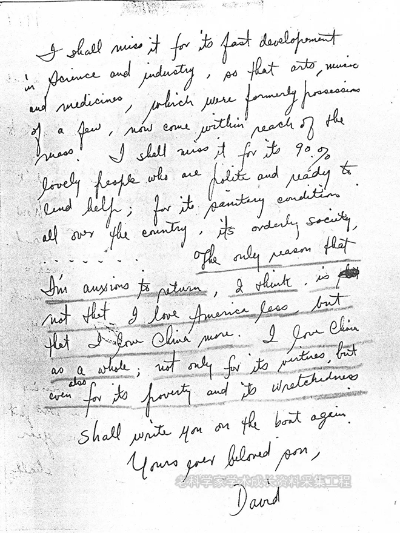 I shall miss it for its fast developement
in science and industry, so that arts, music
and medicines, which were formerly possessions
of a few, now come within reach of the
mass. I shall miss it for its 90%
lovely people who are polite and ready to
lend help; for its sanitary condition
all over the country, its orderly society,
. . . . . . . The only reason that
I'm anxious to return, I think, is
not that I love America less, but
that I love China more. I love China
as a whole; not only for its virtues, but
even also for its poverty and its wretchedness
Shall write you on the boat again.
Yours ever beloved son,
@科学家学术成长资料采集工程
David